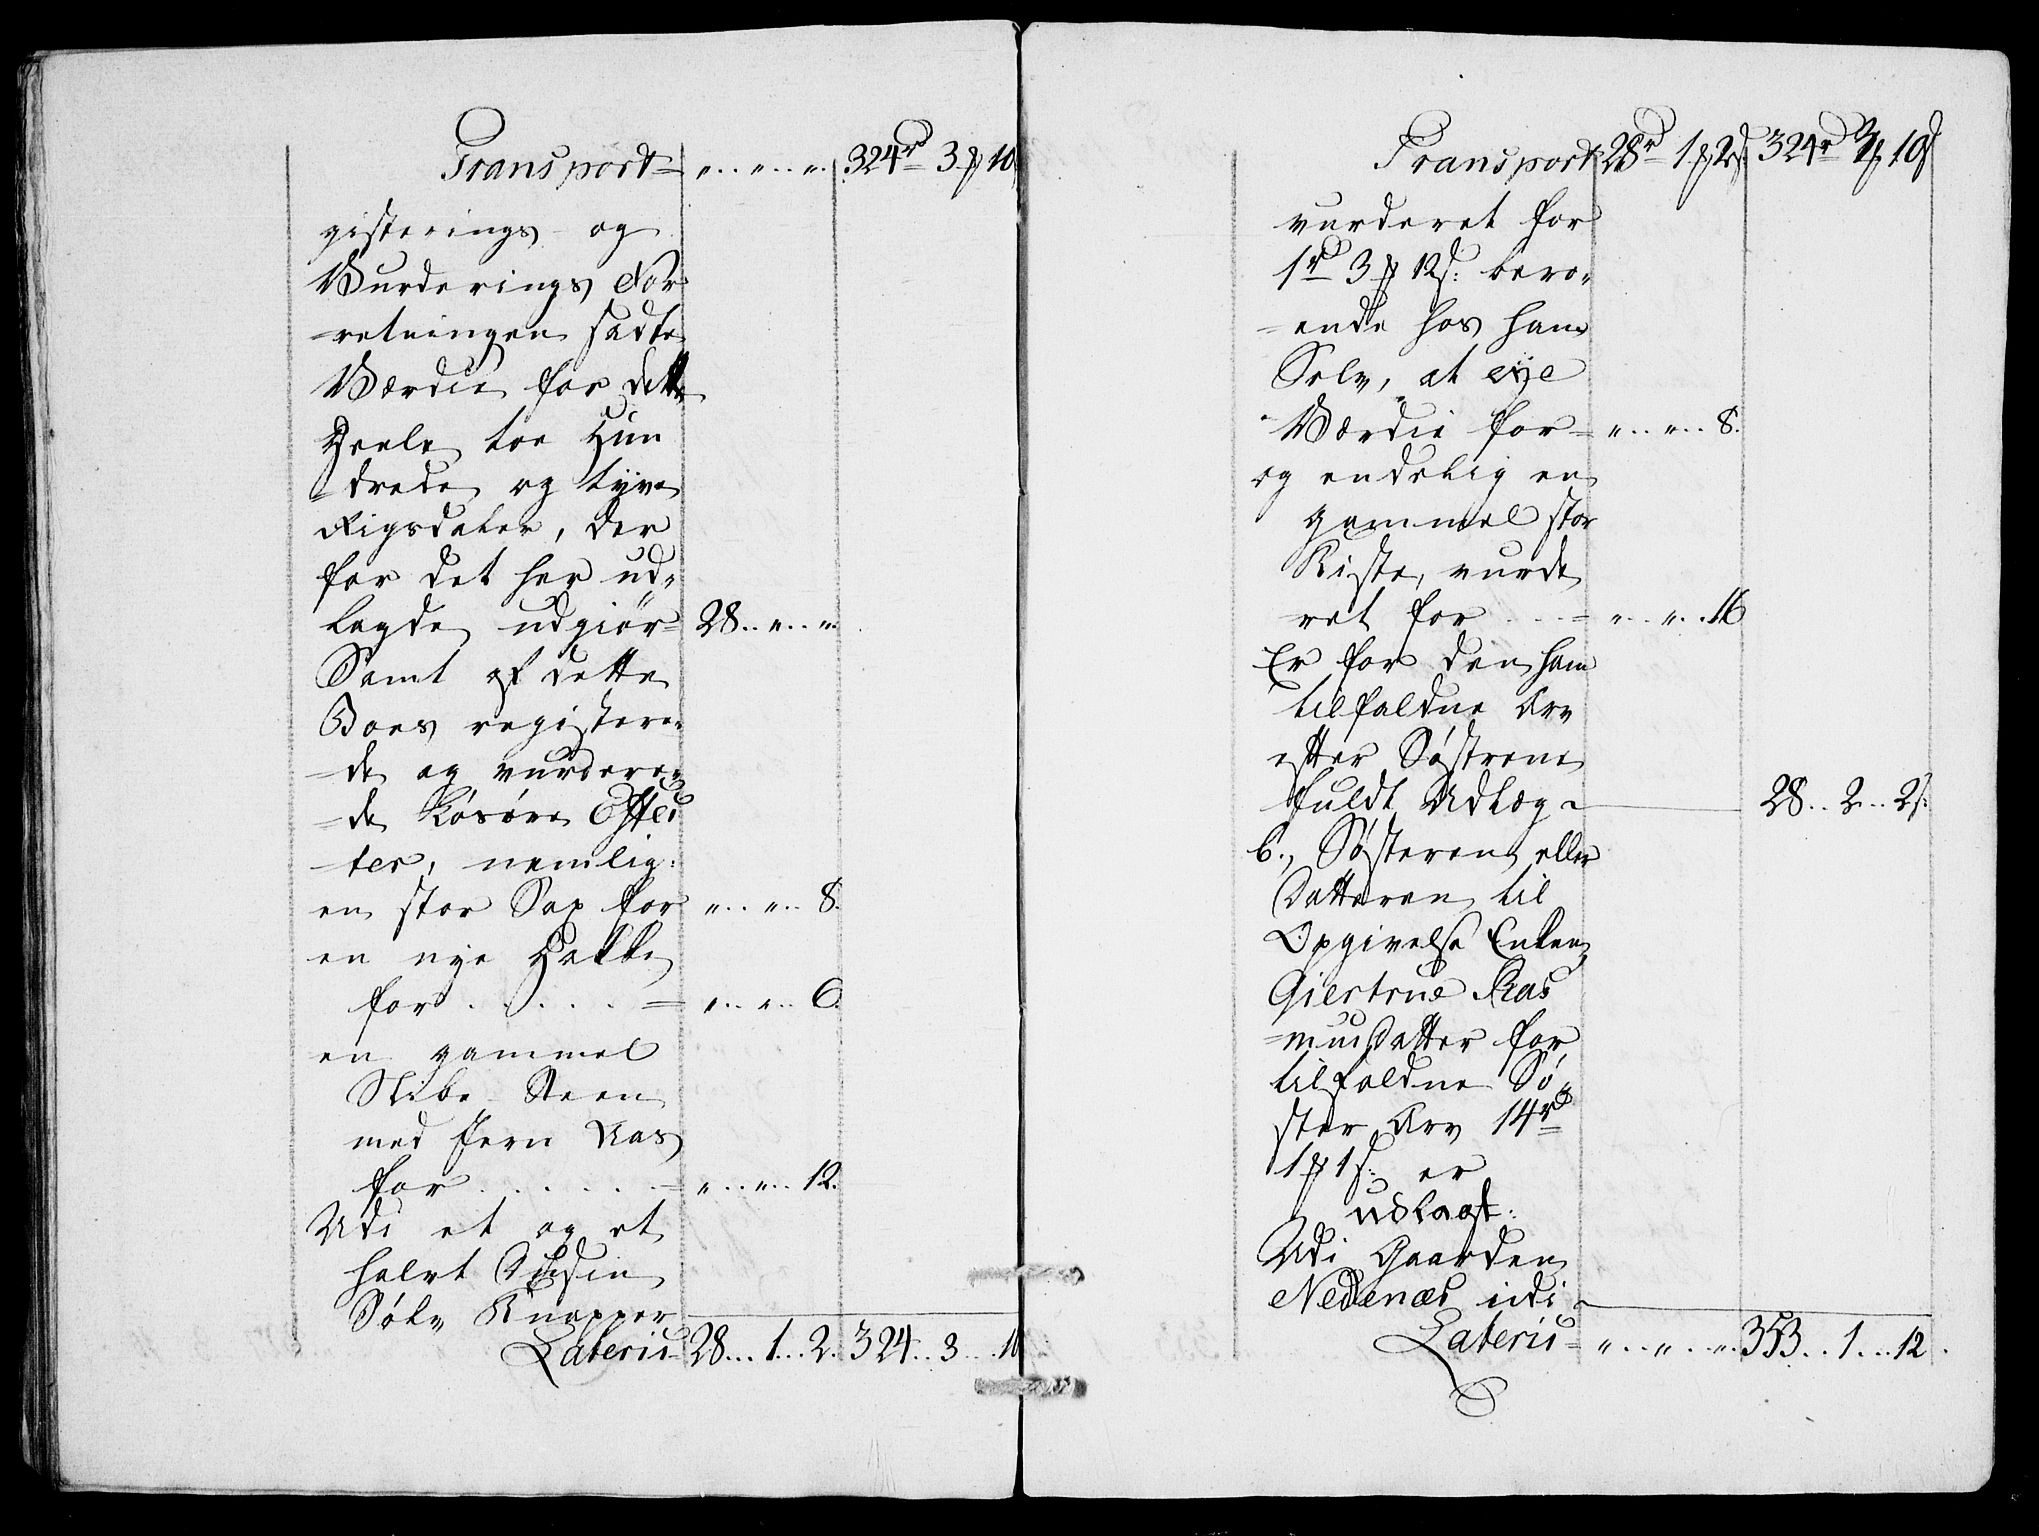 Transport „ .. „ .. „ 324rd 3 ß 10
gisterings og
Vurderings For
=retningen sadte
Værdie for dette
Heele toe Hun
=drede og tyve
Rigsdaler, der
for det her ud„
lagde udgiør 28 .. „ .. „
Samt af dette
Boes registere„
=de og vurdere„
=de Løsøre Effec
=ter, nemlig:
en stor Sax for „ .. „ .. 8.
en nye Hakke
for . . . . . = „ .. „ .. 6.
en gammel
Slibe Steen
med Jern Aas
for . . . . . . = „ .. „ .. 12.
Udi et og et
halvt Dusin
Sølv Knapper
Lateris 28 ... 1 ... 2. 324 .. 3 ... 10
Transport 28rd 1 ß 2s: 324rd 3 ß 10s
vurderet for
1rd 3 ß 12s: bero„
=ende hos ham
Selv, at eÿe
Værdie for = „ .. „ .. 8.
og endelig en
gammel stor
Kiste, vurde
=ret for . . . = „ .. „ .. 16
Er for den ham
tilfaldne Arv
efter Søstrene
fuldt Udlæg 28 .. 2 .. 2s:
6., Søsteren eller
Datteren til
Opgivelse Enken
Giertrue Ras
=musdatter for
tilfaldne Sø„
ster Arv 14rd
1 ß 1s: er
udlagt:
Udi Gaarden
Nedenæs udi
Lateris = „ .. „ .. „ 353 .. 1 ... 12.